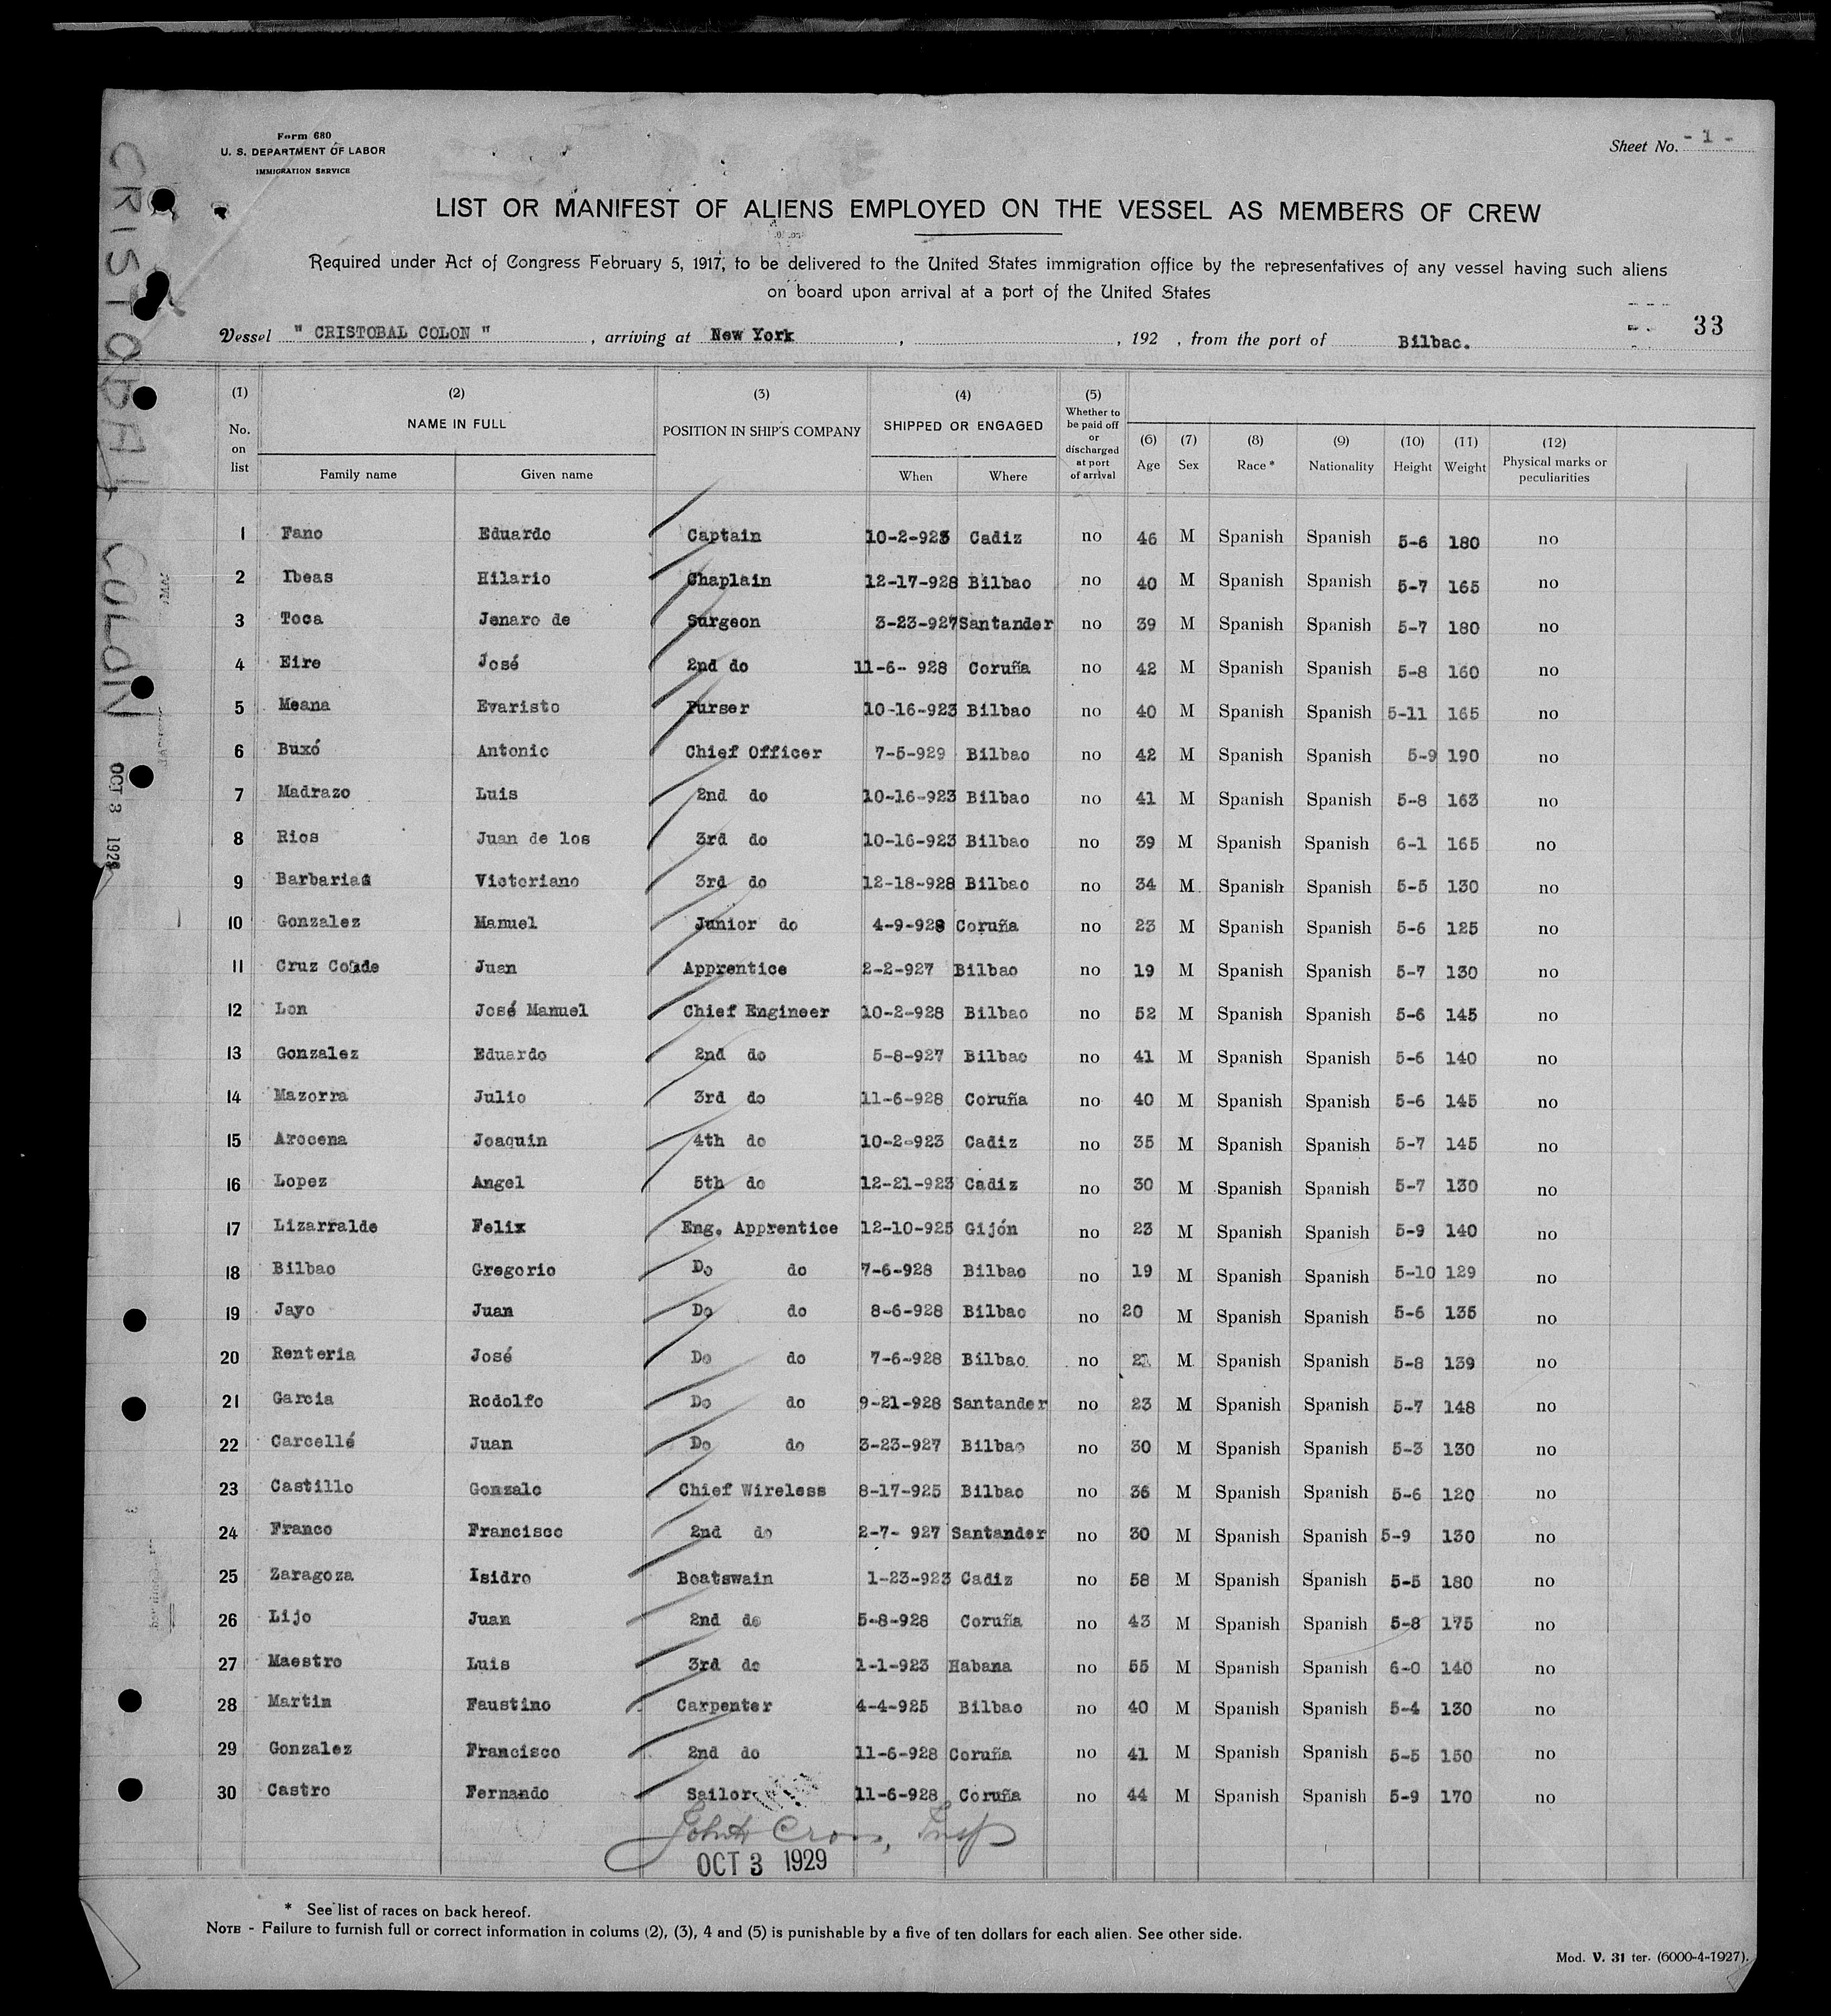 Form 680
U. S. DEPARTMENT OF LABOR
IMMIGRATION SERVICE
Sheet No. - 1 -
LIST OR MANIFEST OF ALIENS EMPLOYED ON THE VESSEL AS MEMBERS OF CREW
Required under Act of Congress February 5, 1917, to be delivered to the United States immigration office by the representatives of any vessel having such aliens
on board upon arrival at a port of the United States
33
Vessel " CRISTOBAL COLON " , arriving at New York , , 192 , from the port of Bilbao.
CRISTOBAL COLON
OCT 3 1929
(1) No. on list (2) NAME IN FULL Family name Given name (3) POSITION IN SHIP'S COMPANY (4) SHIPPED OR ENGAGED When Where (5) Whether to be paid off or discharged at port of arrival (6) Age (7) Sex (8) Race * (9) Nationality (10) Height (11) Weight (12) Physical marks or peculiarities
1 Fano Eduardo Captain 10-2-923 Cadiz no 46 M Spanish Spanish 5-6 180 no
2 Ibeas Hilario Chaplain 12-17-928 Bilbao no 40 M Spanish Spanish 5-7 165 no
3 Toca Jenaro de Surgeon 3-23-927 Santander no 39 M Spanish Spanish 5-7 180 no
4 Eire José 2nd do 11-6- 928 Coruña no 42 M Spanish Spanish 5-8 160 no
5 Meana Evaristo Purser 10-16-923 Bilbao no 40 M Spanish Spanish 5-11 165 no
6 Buxó Antonio Chief Officer 7-5-929 Bilbao no 42 M Spanish Spanish 5-9 190 no
7 Madrazo Luis 2nd do 10-16-923 Bilbao no 41 M Spanish Spanish 5-8 163 no
8 Rios Juan de los 3rd do 10-16-923 Bilbao no 39 M Spanish Spanish 6-1 165 no
9 Barbarias Victoriano 3rd do 12-18-928 Bilbao no 34 M Spanish Spanish 5-5 130 no
10 Gonzalez Manuel Junior do 4-9-928 Coruña no 23 M Spanish Spanish 5-6 125 no
11 Cruz Conde Juan Apprentice 2-2-927 Bilbao no 19 M Spanish Spanish 5-7 130 no
12 Lon José Manuel Chief Engineer 10-2-928 Bilbao no 52 M Spanish Spanish 5-6 145 no
13 Gonzalez Eduardo 2nd do 5-8-927 Bilbao no 41 M Spanish Spanish 5-6 140 no
14 Mazorra Julio 3rd do 11-6-928 Coruña no 40 M Spanish Spanish 5-6 145 no
15 Arocena Joaquin 4th do 10-2-923 Cadiz no 35 M Spanish Spanish 5-7 145 no
16 Lopez Angel 5th do 12-21-923 Cadiz no 30 M Spanish Spanish 5-7 130 no
17 Lizarralde Felix Eng. Apprentice 12-10-925 Gijón no 23 M Spanish Spanish 5-9 140 no
18 Bilbao Gregorio Do do 7-6-928 Bilbao no 19 M Spanish Spanish 5-10 129 no
19 Jayo Juan Do do 8-6-928 Bilbao no 20 M Spanish Spanish 5-6 135 no
20 Renteria José Do do 7-6-928 Bilbao no 21 M Spanish Spanish 5-8 139 no
21 Garcia Rodolfo Do do 9-21-928 Santander no 23 M Spanish Spanish 5-7 148 no
22 Carcellé Juan Do do 3-23-927 Bilbao no 30 M Spanish Spanish 5-3 130 no
23 Castillo Gonzalo Chief Wireless 8-17-925 Bilbao no 36 M Spanish Spanish 5-6 120 no
24 Franco Francisco 2nd do 2-7- 927 Santander no 30 M Spanish Spanish 5-9 130 no
25 Zaragoza Isidro Boatswain 1-23-923 Cadiz no 58 M Spanish Spanish 5-5 180 no
26 Lijo Juan 2nd do 5-8-928 Coruña no 43 M Spanish Spanish 5-8 175 no
27 Maestro Luis 3rd do 1-1-923 Habana no 55 M Spanish Spanish 6-0 140 no
28 Martin Faustino Carpenter 4-4-925 Bilbao no 40 M Spanish Spanish 5-4 130 no
29 Gonzalez Francisco 2nd do 11-6-928 Coruña no 41 M Spanish Spanish 5-5 150 no
30 Castro Fernando Sailor 11-6-928 Coruña no 44 M Spanish Spanish 5-9 170 no
Cross, Insp
OCT 3 1929
* See list of races on back hereof.
NOTE - Failure to furnish full or correct information in colums (2), (3), 4 and (5) is punishable by a five of ten dollars for each alien. See other side.
Mod. V. 31 ter. (6000-4-1927).